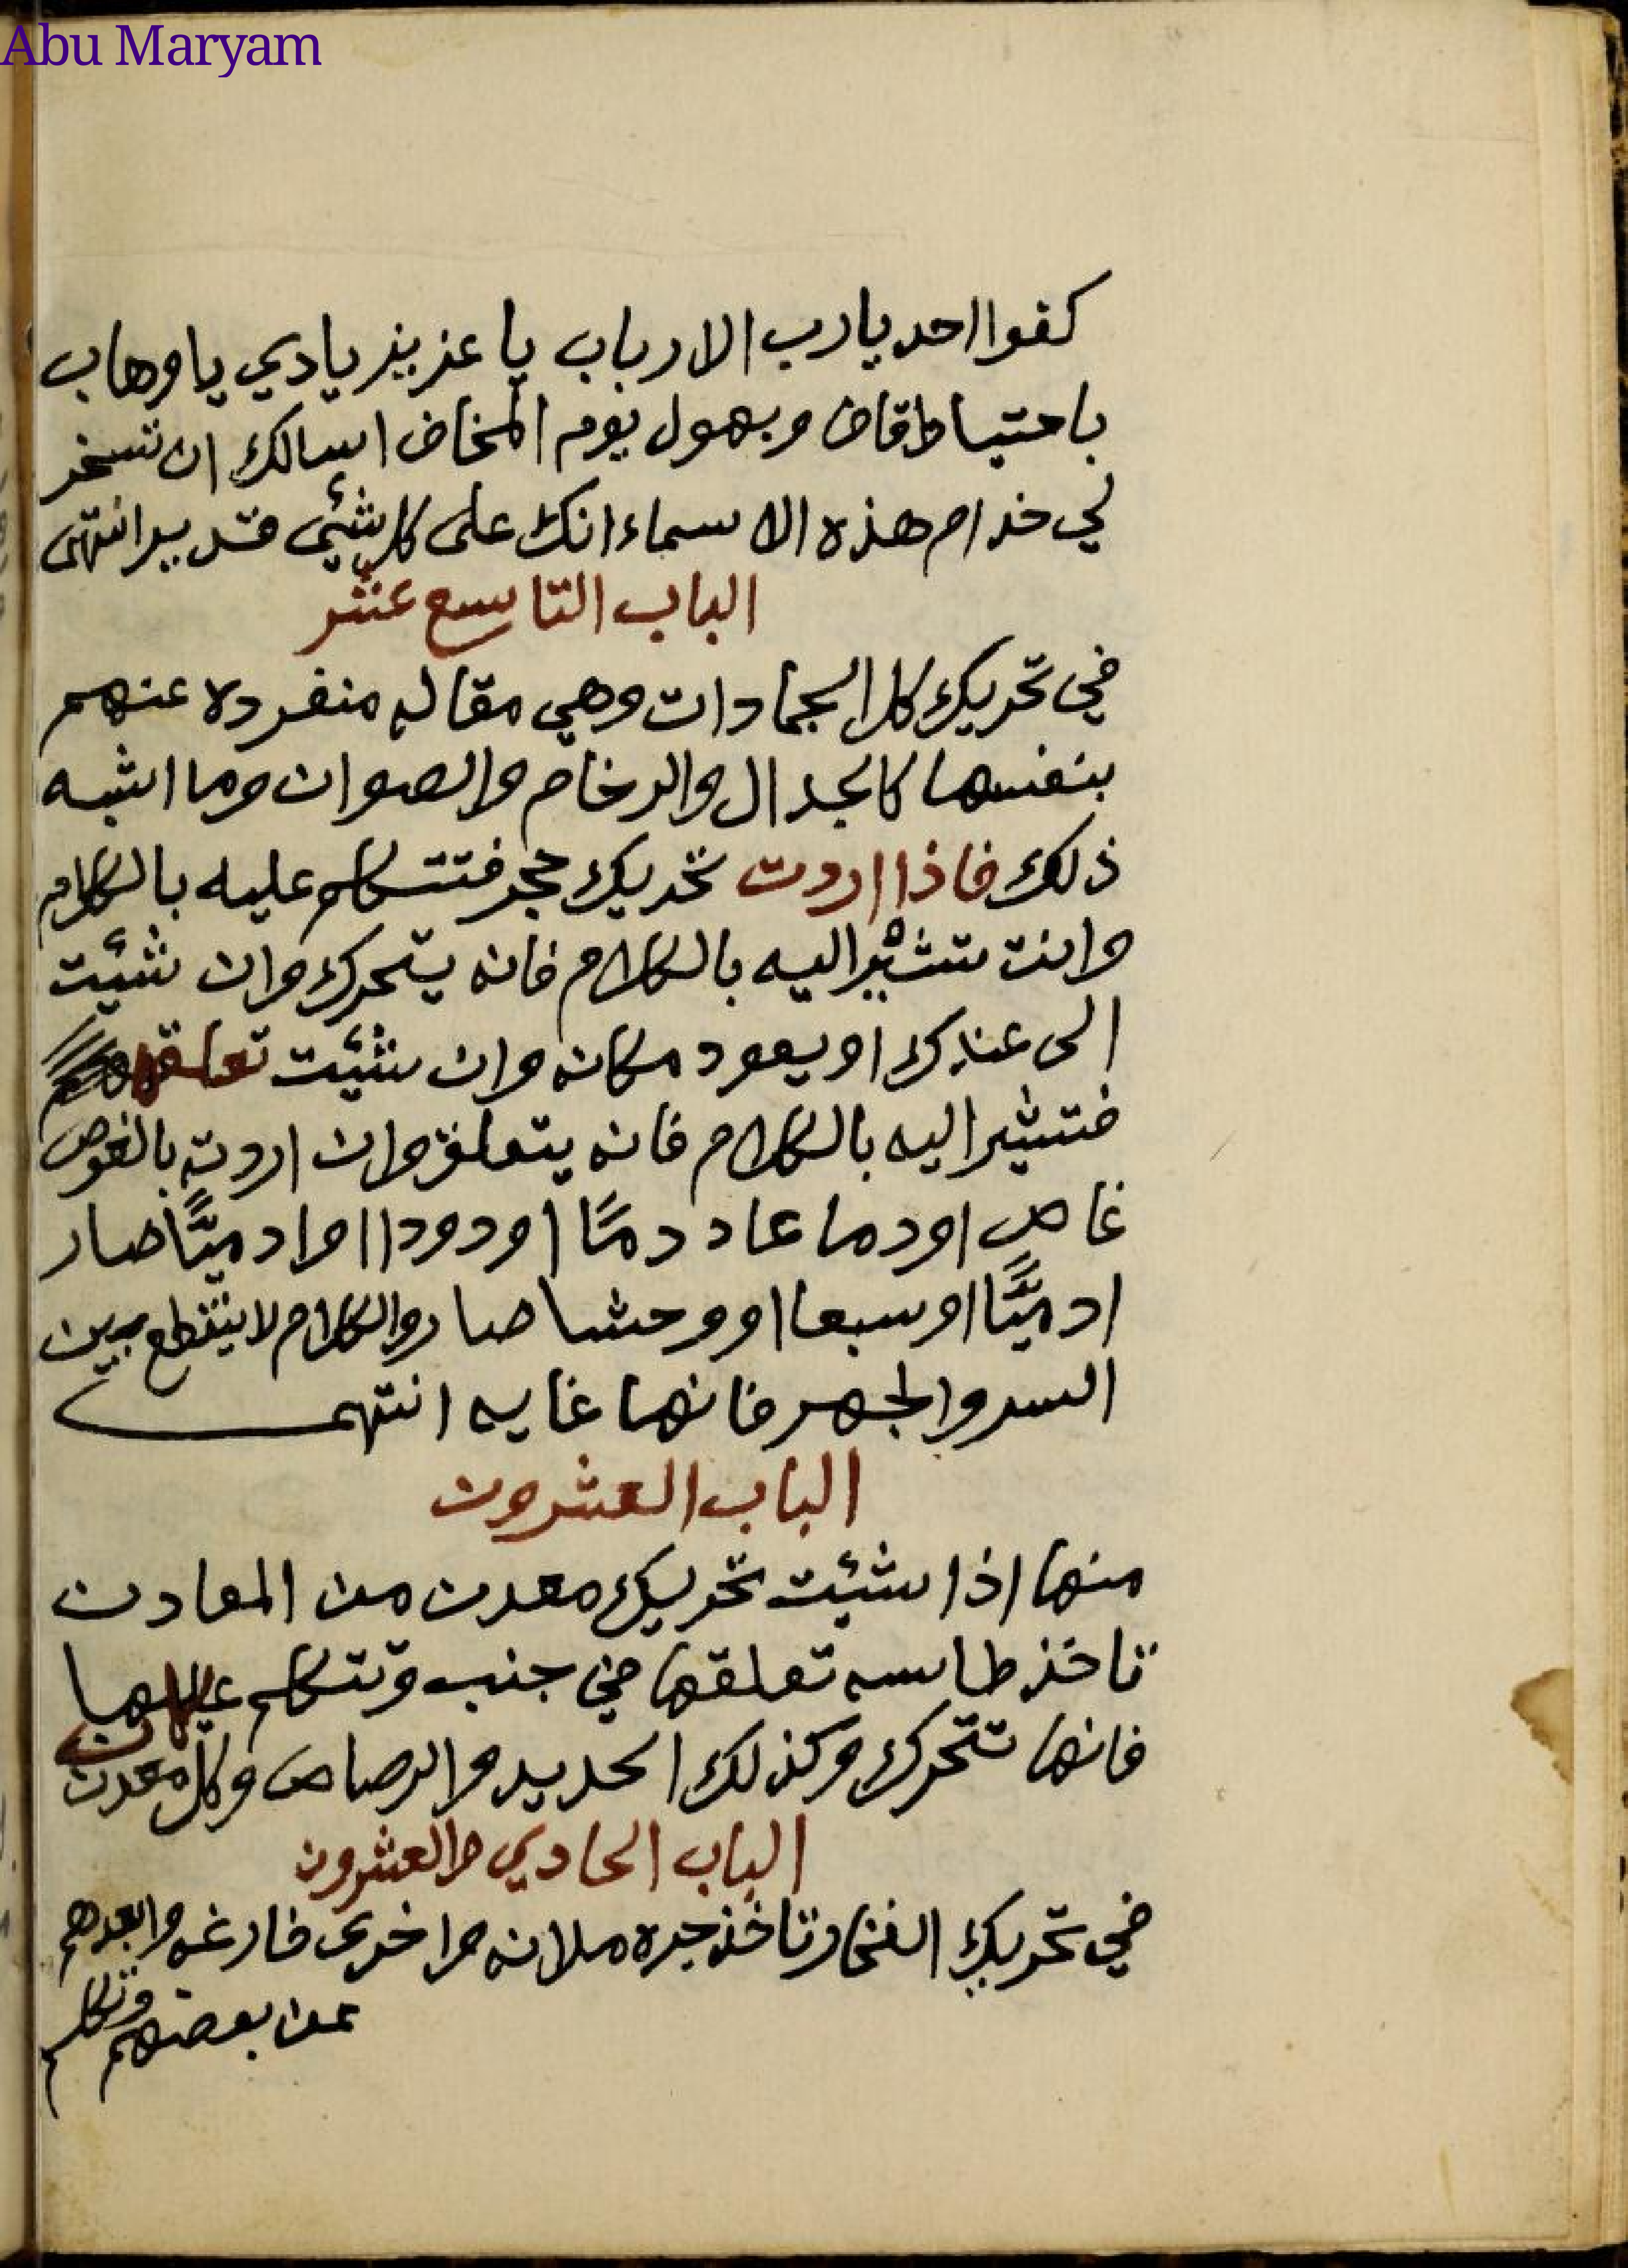 Abu Maryam
كفوا احد يا رب الارباب يا عزيز يا ذي يا وهاب
باحتياط قاف وبهول يوم المخاف اسالك ان تسخر
لي خدام هذه الاسماء انك على كل شئي قدير انتهى
الباب التاسع عشر
في تحريك كل الجمادات وهي مقاله منفرده عنهم
بنفسها كالجدال والرخام والصوان وما اشبه
ذلك فاذا اردت تحريك حجر فتتكلم عليه بالكلام
وانت تشير اليه بالكلام فانه يتحرك وان شئيت
الى عندك او يعود مكانه وان شئيت تعلقه
فتشير اليه بالكلام فانه يتعلق وان اردته بالغوص
غاص او دما عاد دمًا او دودا او ادميًّا صار
ادميًّا او سبعا او وحشا صار والكلام لا ينقطع بين
السر والجهر فانها غايه انتهى
الباب العشرون
منها اذا شئيت تحريك معدن من المعادن
تاخذ طاسه تعلقها في جنب وتتكلم عليها
فانها تتحرك وكذلك الحديد والرصاص وكل معدن
الباب الحادي والعشرون
في تحريك الفخار تاخذ جره ملانه واخرى فارغه وابعدهم
عن بعضهم وتكلم